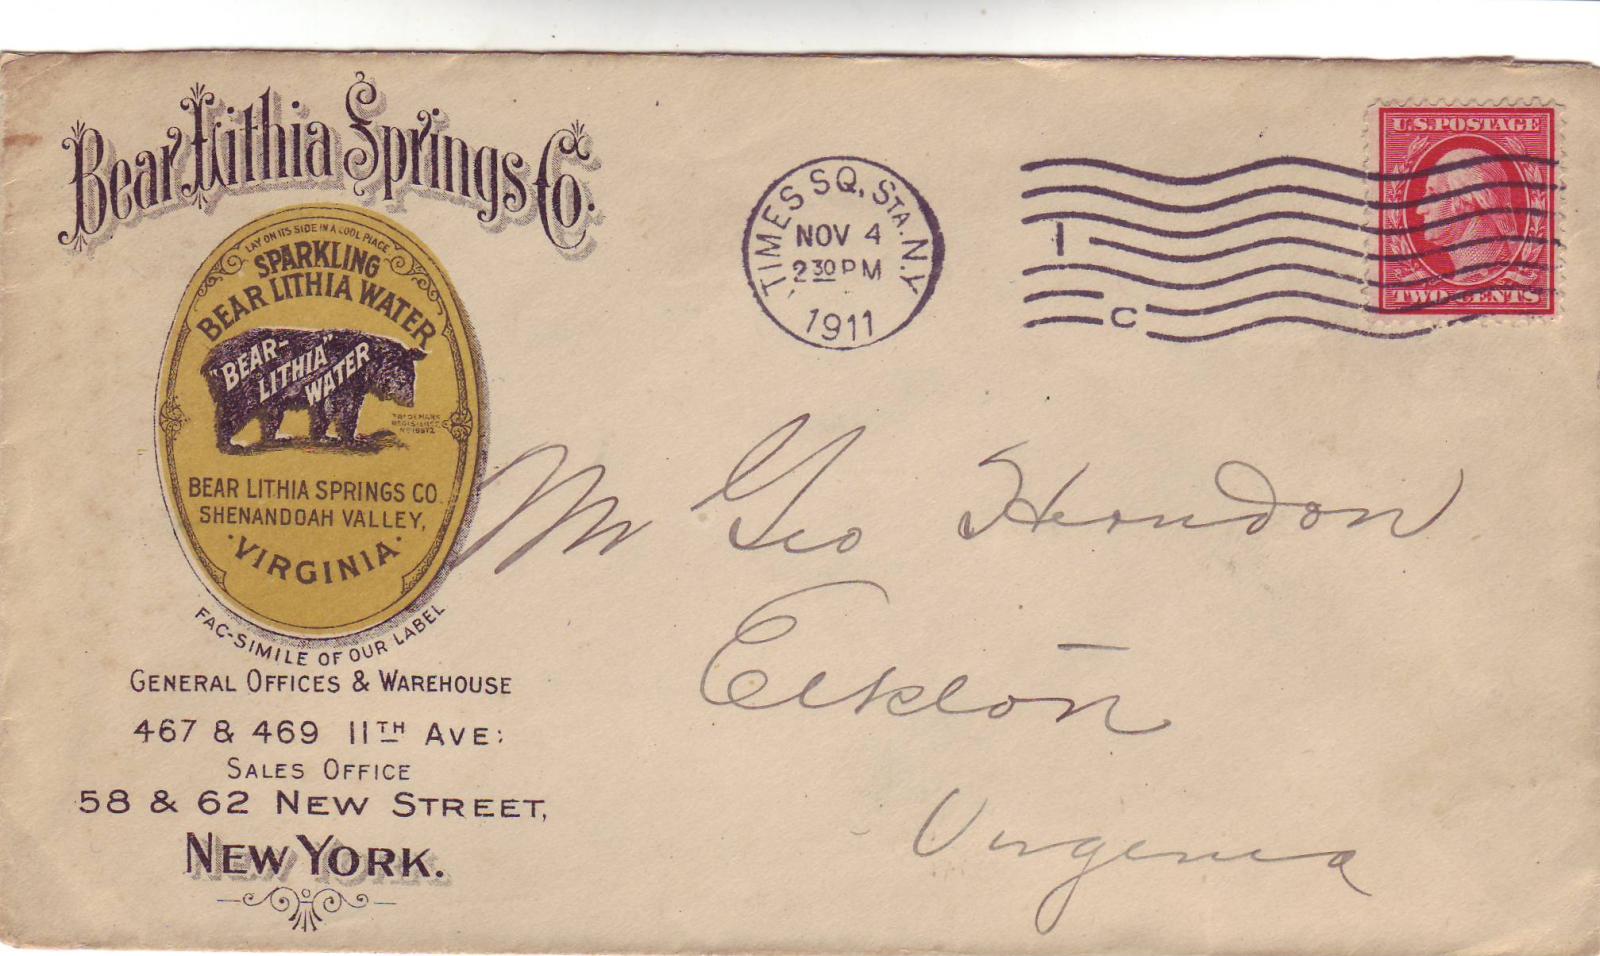 Bear Lithia Springs Co.
LAY ON ITS SIDE IN A COOL PLACE
SPARKLING
BEAR LITHIA WATER
"BEAR-
LITHIA"
WATER
TRADEMARK
REGISTERED
BEAR LITHIA SPRINGS CO.
SHENANDOAH VALLEY,
·VIRGINIA·
FAC-SIMILE OF OUR LABEL
GENERAL OFFICES & WAREHOUSE
467 & 469 11TH AVE:
SALES OFFICE
58 & 62 NEW STREET,
NEW YORK.
TIMES SQ. STA. N.Y.
NOV 4
2 30 PM
1911
1
C
U.S. POSTAGE
TWO CENTS
Mr Geo Herndon
Elkton
Virginia